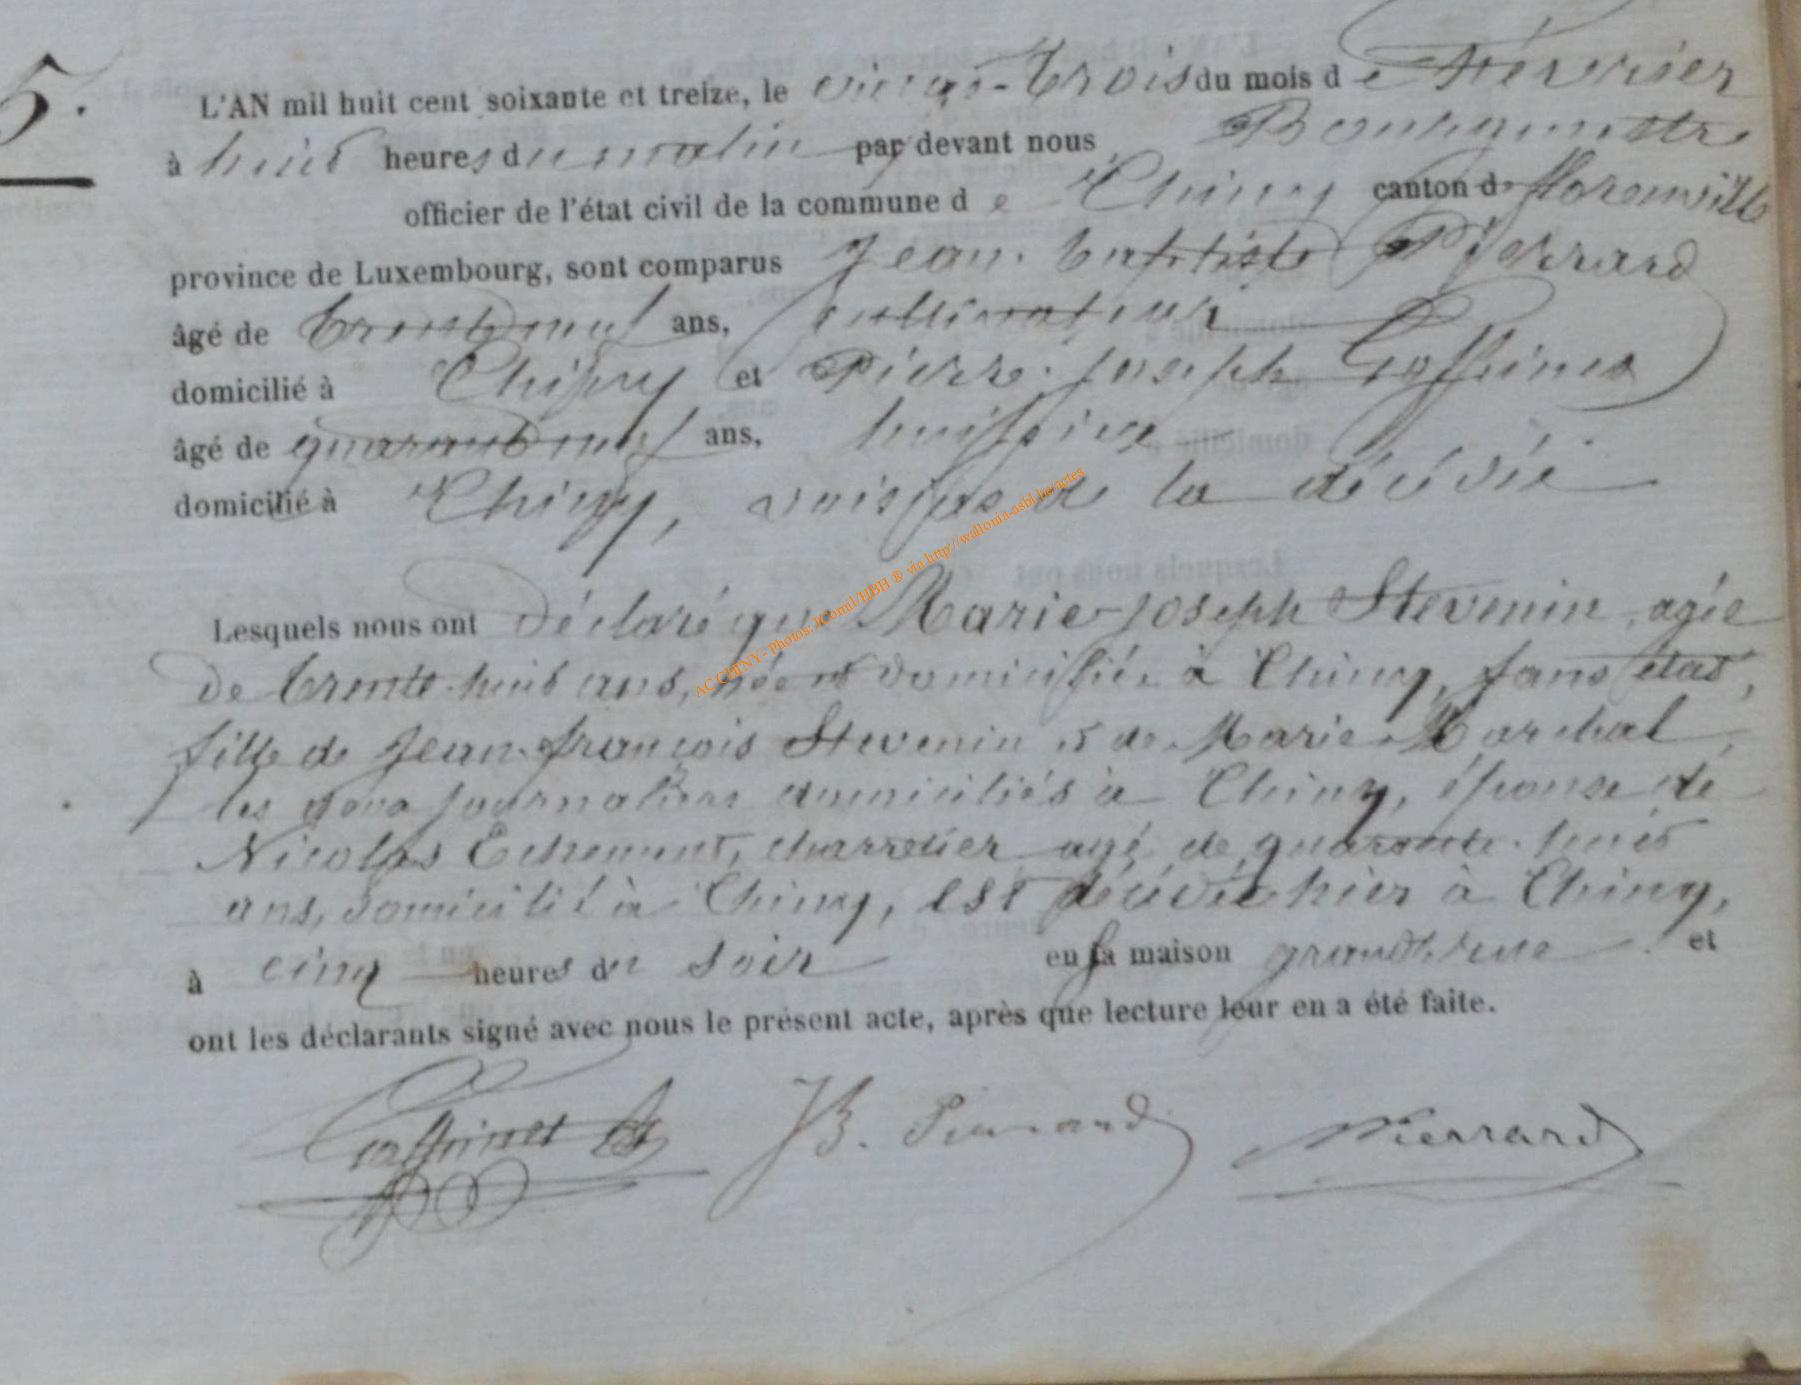 5.
L'AN mil huit cent soixante et treize, le vingt-trois du mois de Février
à huit heures du matin par devant nous, Bourgmestre
officier de l'état civil de la commune de Chiny canton de florenville
province de Luxembourg, sont comparus Jean-baptiste Pierrard
âgé de trente neuf ans, cultivateur
domicilié à Chiny et Pierre-joseph Goffinet
âgé de quarante neuf ans, huissier
domicilié à Chiny, voisins de la décédée
Lesquels nous ont déclaré que Marie-joseph Stevenin, agée
de trente-huit ans, née et domiciliée à Chiny, sans état,
fille de Jean-françois Stevenin et de Marie Marchal,
les deux journaliers domiciliés à Chiny, épouse de
Nicolas Echement, charretier agé de quarante-huit
ans, domicilié à Chiny, est décédée hier à Chiny,
à cinq heures du soir en sa maison grande rue et
ont les déclarants signé avec nous le présent acte, après que lecture leur en a été faite.
Goffinet JB. Pierrard Pierrard
AC CHINY - Photos: JComil HBH ® via http://wallonia-asbl.be/actes